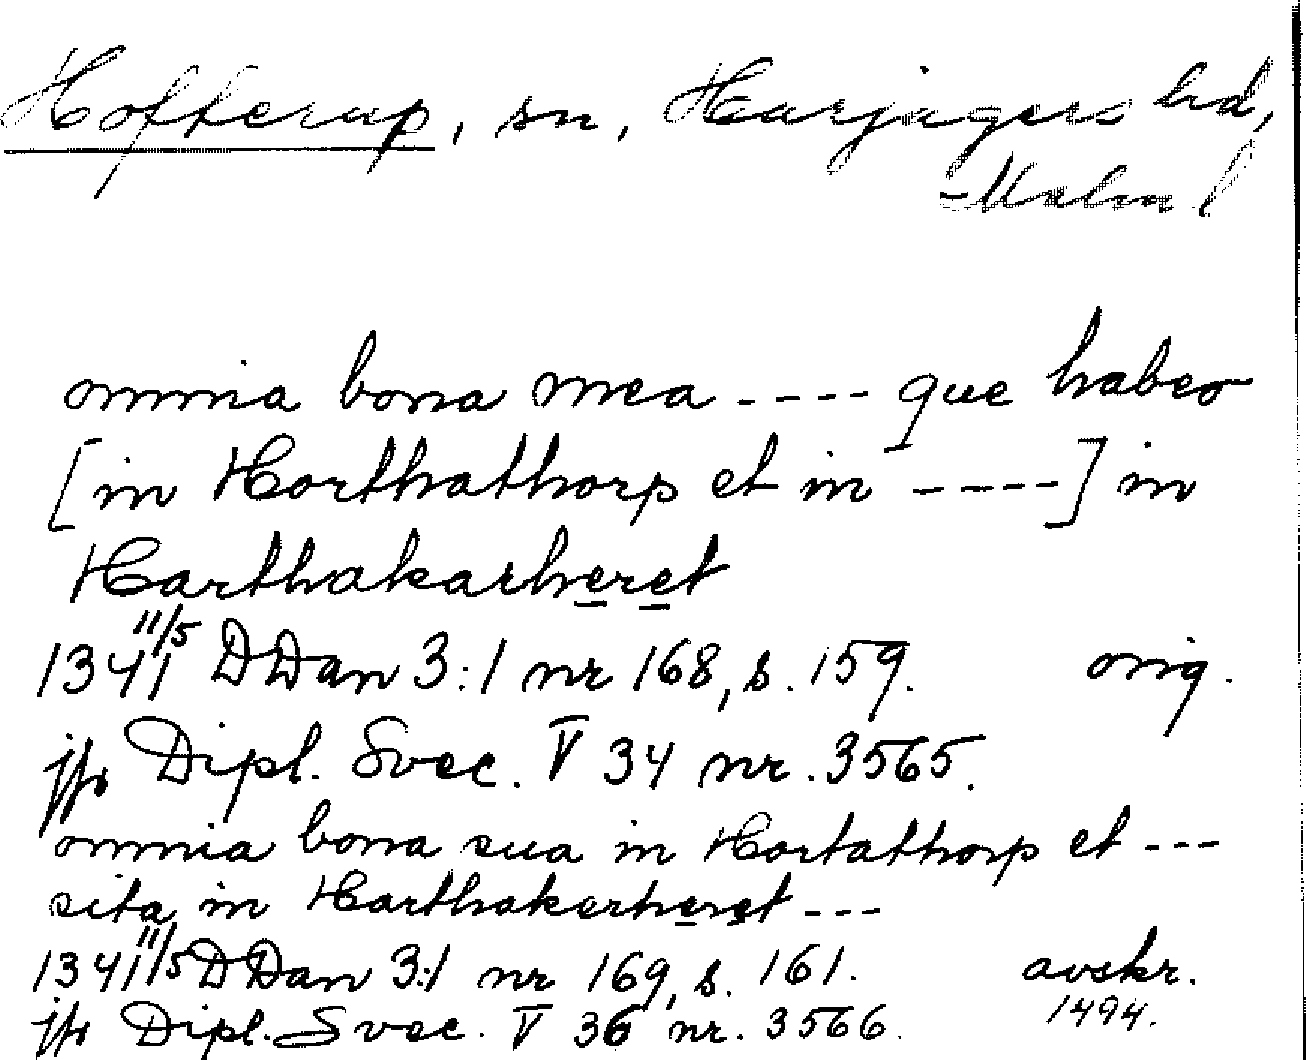 Hofterup, sn, Harjagers hd,
Malm l
omnia bona mea ---- que habeo
[in Horthathorp et in ----] in
Harthakarheret
1341 11/5 DDan 3:1 nr 168, s. 159. orig.
jfr Dipl. Svec. V 34 nr. 3565.
omnia bona sua in Hortathorp et ---
sita in Harthakerheret ---
1341 11/5 DDan 3:1 nr 169, s. 161. avskr.
1494.
jfr Dipl. Svec. V 36 nr. 3566.